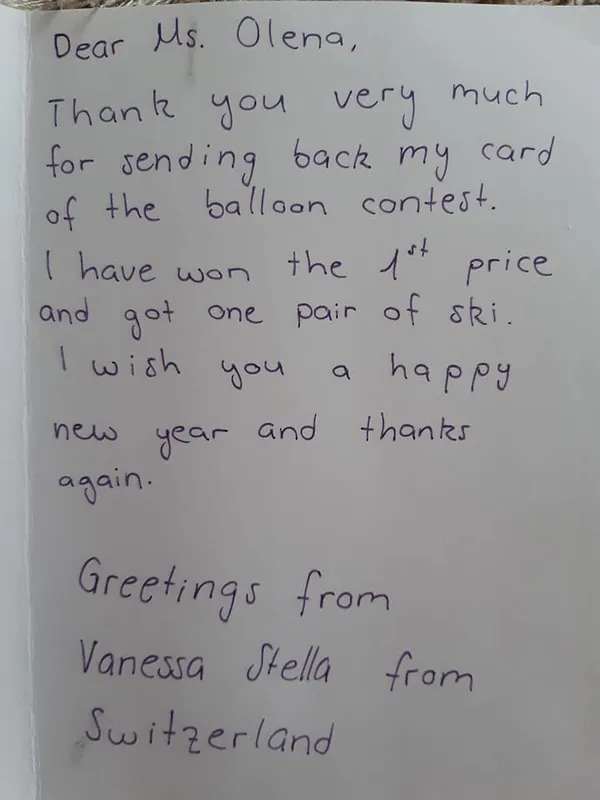 Dear Ms. Olena,
Thank you very much
for sending back my card
of the balloon contest.
I have won the 1st price
and got one pair of ski.
I wish you a happy
new year and thanks
again.
Greetings from
Vanessa Stella from
Switzerland